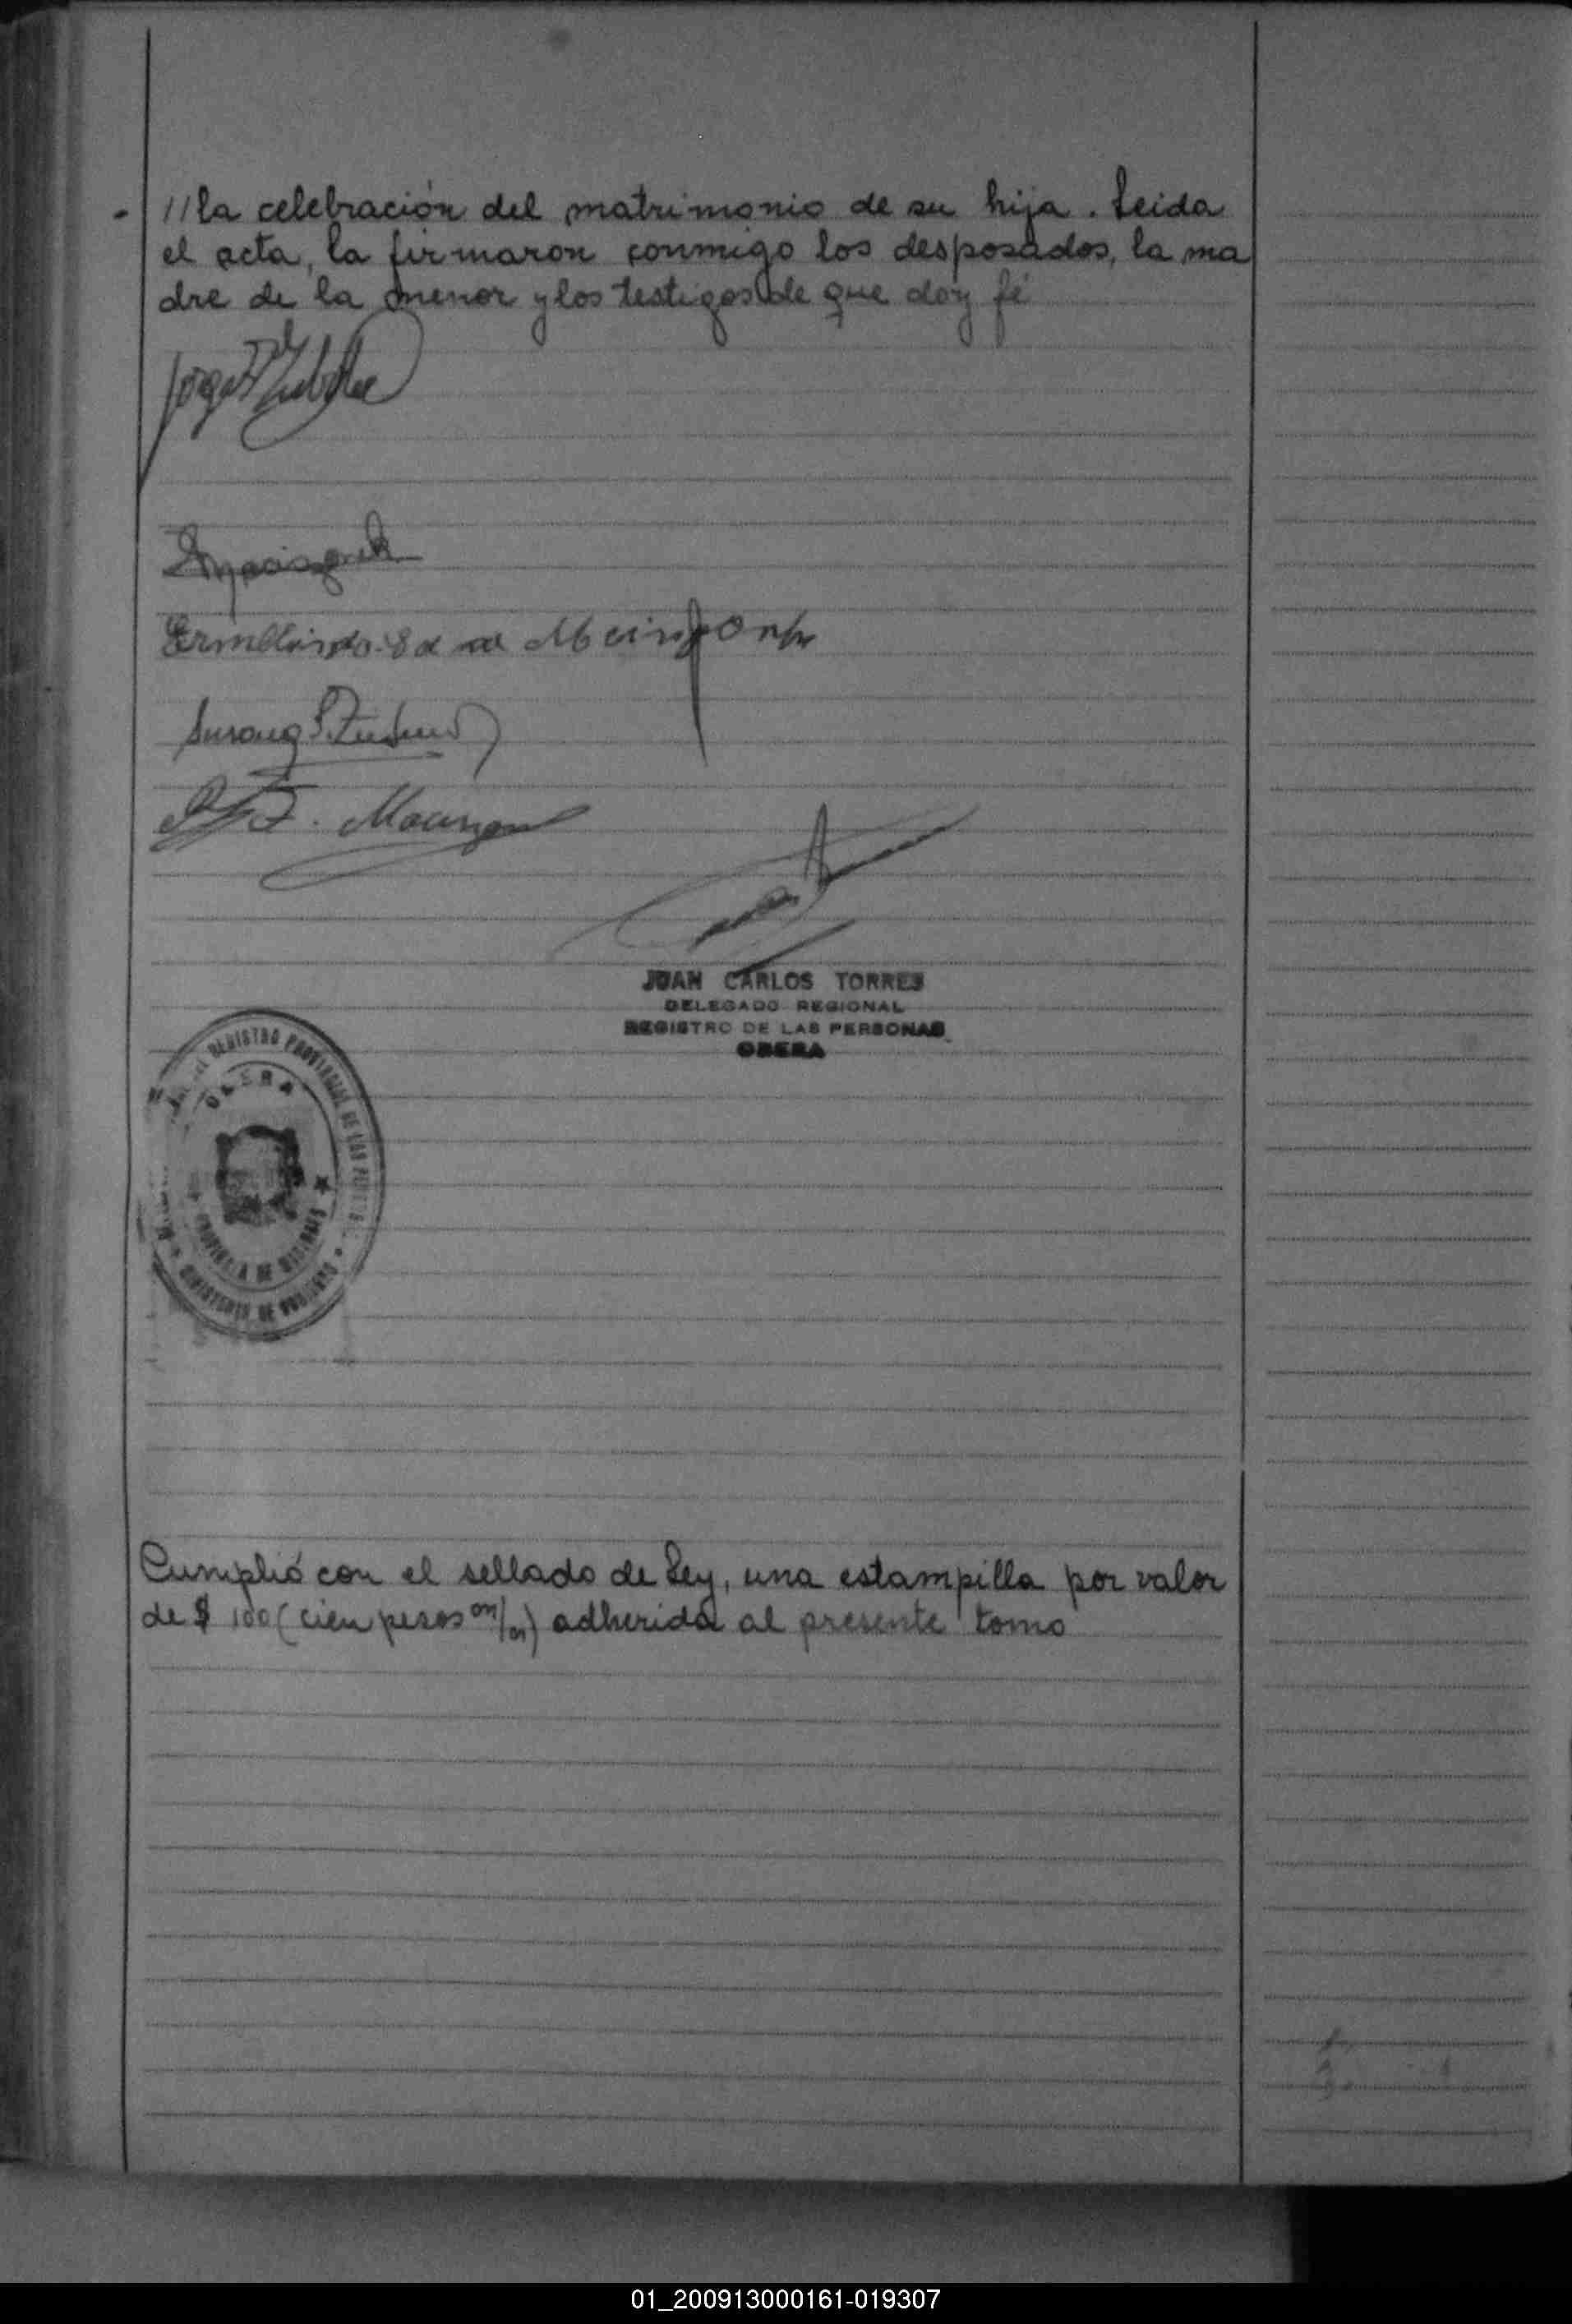 //la celebración del matrimonio de su hija. Leida
el acta, la firmaron conmigo los desposados, la ma
dre de la menor y los testigos de que doy fé
JUAN CARLOS TORRES
DELEGADO REGIONAL
REGISTRO DE LAS PERSONAS
OBERA
REGISTRO PROVINCIAL DE LAS
OBERA
PROVINCIA DE MISIONES
MINISTERIO DE GOBIERNO
Cumplió con el sellado de Ley, una estampilla por valor
de $ 100 (cien pesos m/n) adherida al presente tomo
01_200913000161-019307